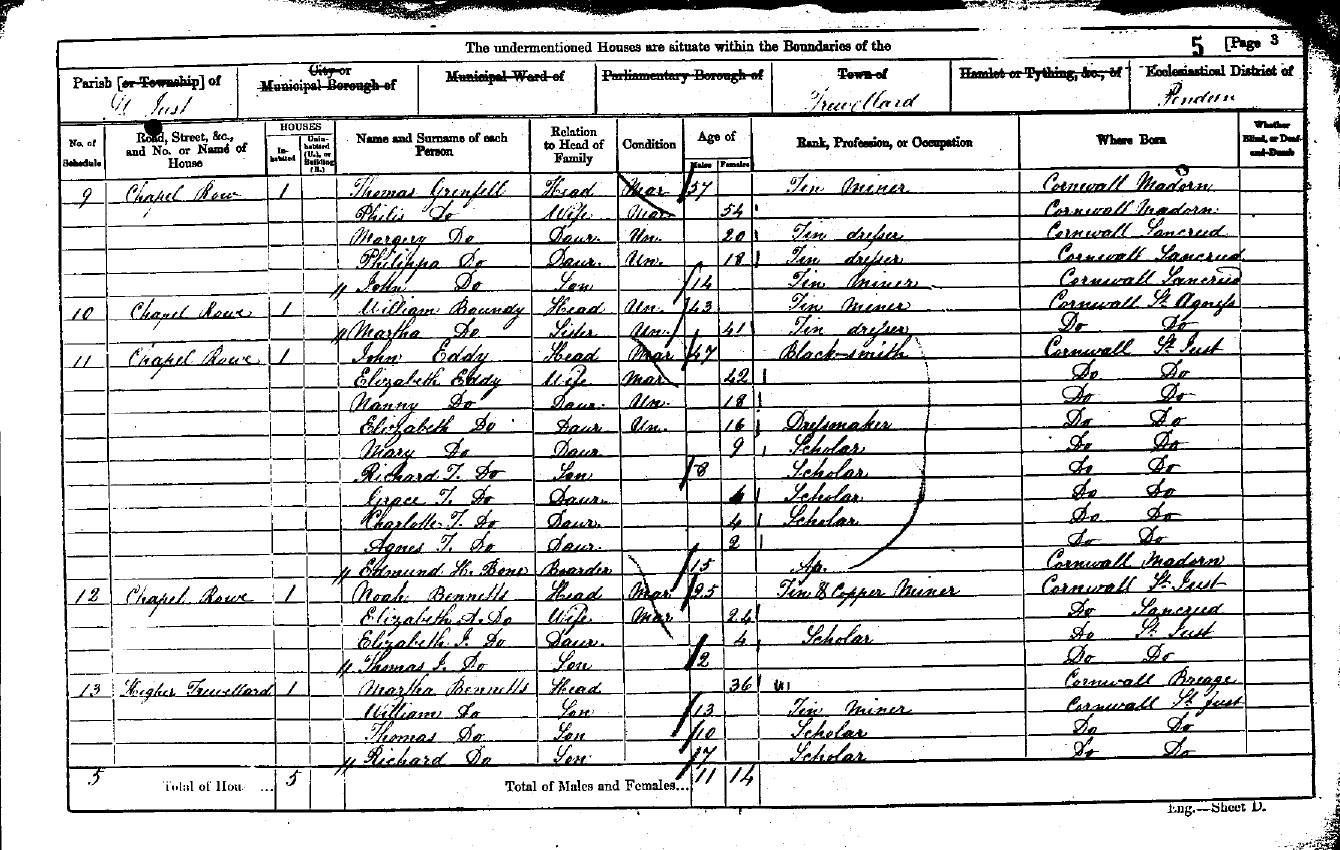 The undermentioned Houses are situate within the Boundaries of the
5 [Page 3
Parish [or Township] of St Just
City or Municipal Borough of
Municipal Ward of
Parliamentary Borough of
Town of Trewellard
Hamlet or Tything, &c., of
Ecclesiastical District of Pendeen
No. of Schedule
Road, Street, &c., and No. or Name of House
HOUSES
Inhabited
Uninhabited (U.), or Building (B.)
Name and Surname of each Person
Relation to Head of Family
Condition
Age of
Males Females
Rank, Profession, or Occupation
Where Born
Whether Blind, or Deaf-and-Dumb
9 Chapel Row 1 Thomas Grenfell Head Mar 57 Tin Miner Cornwall Madorn
Philis Do Wife Mar 54 Cornwall Madorn
Margery Do Daur. Un. 20 Tin dresser Cornwall Sancreed
Philippa Do Daur. Un. 18 Tin dresser Cornwall Sancreed
John Do Son 14 Tin Miner Cornwall Sancreed
10 Chapel Rowe 1 William Roundy Head Un. 43 Tin Miner Cornwall St. Agness
Martha Do Sister Un. 41 Tin dresser Do Do
11 Chapel Rowe 1 John Eddy Head Mar 47 Black-smith Cornwall St. Just
Elizabeth Eddy Wife Mar 42 Do Do
Nanny Do Daur. Un. 18 Do Do
Elizabeth Do Daur Un. 16 Dressmaker Do Do
Mary Do Daur 9 Scholar Do Do
Richard T. Do Son 8 Scholar Do Do
Grace T. Do Daur. 6 Scholar Do Do
Charlotte T. Do Daur. 4 Scholar Do Do
Agnes T. Do Daur. 2 Do Do
Edmund H. Bone Boarder 15 Ap. Cornwall Madorn
12 Chapel Rowe 1 Noah Bennetts Head Mar 25 Tin & Copper Miner Cornwall St. Just
Elizabeth A. Do Wife Mar 24 Do Sancreed
Elizabeth J. Do Daur. 4 Scholar Do St Just
Thomas J. Do Son 2 Do Do
13 Higher Trewellard 1 Martha Bennetts Head 36 Cornwall Breage
William Do Son 13 Tin Miner Cornwall St. Just
Thomas Do Son 10 Scholar Do Do
Richard Do Son 7 Scholar Do Do
5 Total of Hou. ... 5 Total of Males and Females... 11 14
Eng.—Sheet D.